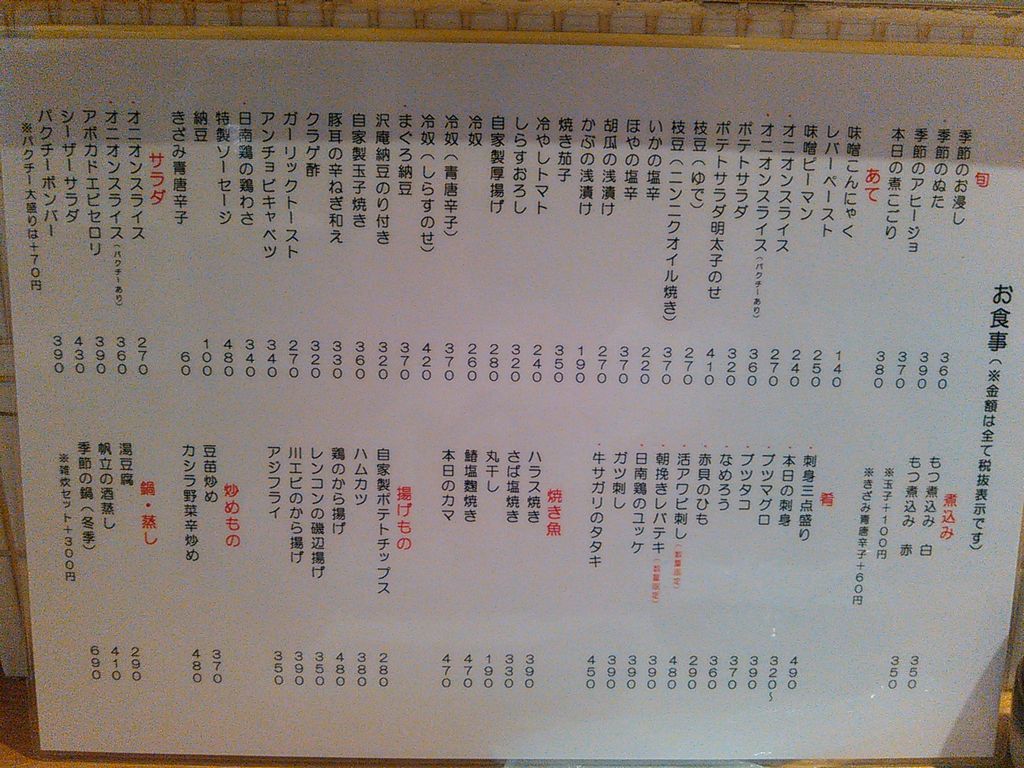 お食事(※金額は全て税抜表示です)
旬
季節のお浸し 360
季節のぬた 390
季節のアヒージョ 370
本日の煮こごり 380
あて
味噌こんにゃく 140
レバーペースト 250
味噌ピーマン 240
オニオンスライス 270
オニオンスライス(パクチーあり) 360
ポテトサラダ 320
ポテトサラダ明太子のせ 410
枝豆(ゆで) 270
枝豆(ニンニクオイル焼き) 370
いかの塩辛 220
ほやの塩辛 370
胡瓜の浅漬け 270
かぶの浅漬け 190
焼き茄子 350
冷やしトマト 240
しらすおろし 320
自家製厚揚げ 280
冷奴 260
冷奴(青唐辛子) 370
冷奴(しらすのせ) 420
まぐろ納豆 370
沢庵納豆のり付き 320
自家製玉子焼き 360
豚耳の辛ねぎ和え 330
クラゲ酢 320
ガーリックトースト 270
アンチョビキャベツ 340
日南鶏の鶏わさ 340
特製ソーセージ 480
納豆 100
きざみ青唐辛子 60
サラダ
オニオンスライス 270
オニオンスライス(パクチーあり) 360
アボカドエビセロリ 390
シーザーサラダ 430
パクチーボンバー 390
※パクチー大盛りは+70円
煮込み
もつ煮込み 白 350
もつ煮込み 赤 350
※玉子+100円
※きざみ青唐辛子+60円
肴
刺身三点盛り 490
本日の刺身 320~
ブツマグロ 390
ブツタコ 370
なめろう 360
赤貝のひも 290
活アワビ刺し(数量限定) 480
朝挽きレバテキ(数量限定) 390
日南鶏のユッケ 390
ガツ刺し 390
牛サガリのタタキ 450
焼き魚
ハラス焼き 390
さば塩焼き 330
丸干し 190
鰆塩麹焼き 470
本日のカマ 470
揚げもの
自家製ポテトチップス 280
ハムカツ 380
鶏のから揚げ 480
レンコンの磯辺揚げ 350
川エビのから揚げ 390
アジフライ 350
炒めもの
豆苗炒め 370
カシラ野菜辛炒め 480
鍋・蒸し
湯豆腐 290
帆立の酒蒸し 410
季節の鍋(冬季) 690
※雑炊セット+300円